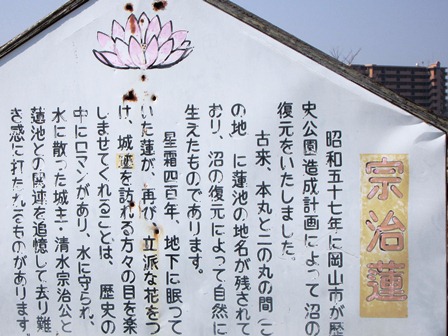 宗治蓮
昭和五十七年に岡山市が歴
史公園造成計画によって沼の
復元をいたしました。
古来、本丸と二の丸の間(こ
の地に蓮池の地名が残されて
おり、沼の復元によって自然に
生えたものであります。
星霜四百年、地下に眠って
いた蓮が、再び、立派な花をつ
け、城蓮を訪れる方々の目を楽
しませてくれることは、歴史の
中にロマンがあり、水に守られ、
水に散った城主・清水宗治公と
蓮池との関連を追憶して去り難
き感に打たれるものがあります。